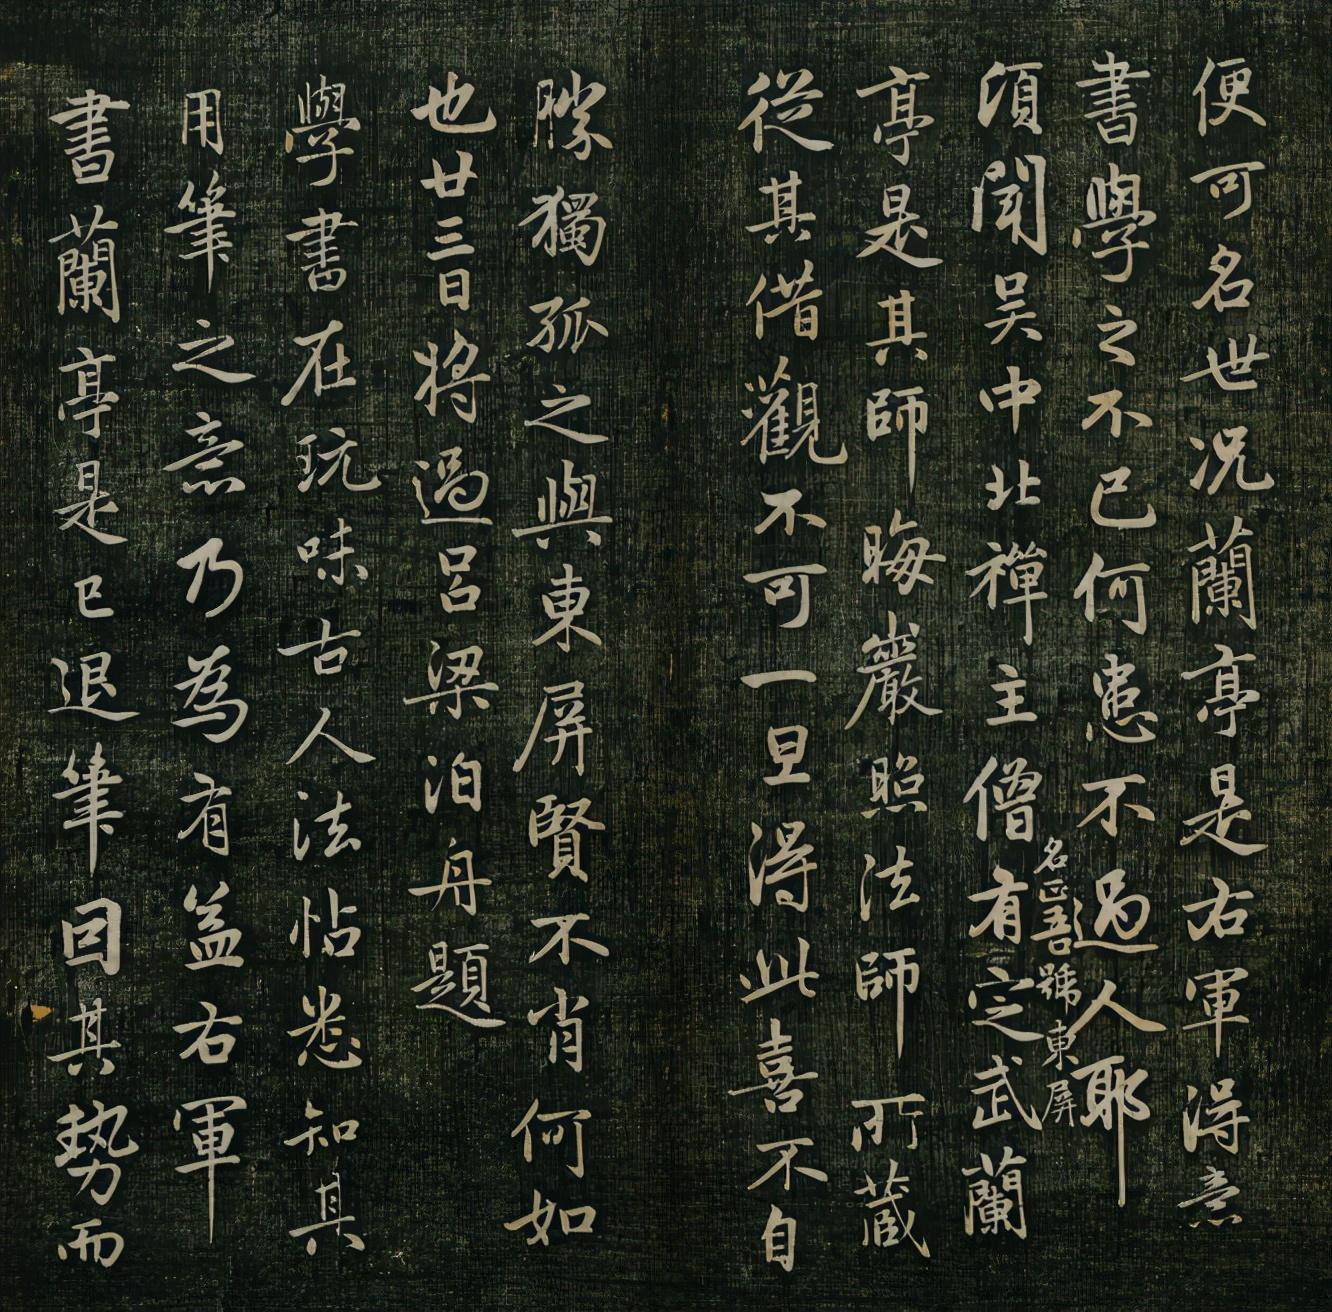 便可名世况蘭亭是右軍得意
書學之不已何患不過人耶
須聞吴中北禪主僧有定武蘭
名正吾號東屏
亭是其師晦巖照法師所藏
從其借觀不可一旦得此喜不自
勝獨孤之與東屏賢不肖何如
也廿三日將過吕梁泊舟題
學書在玩味古人法帖悉知其
用筆之意乃為有益右軍
書蘭亭是已退筆因其勢而